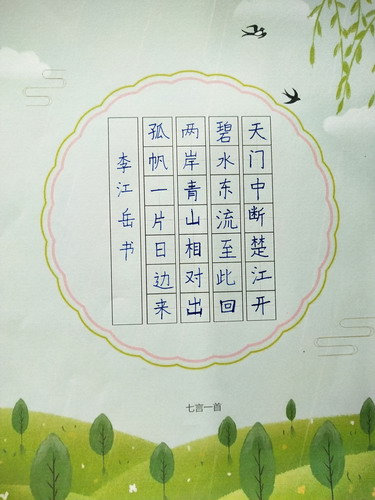 天门中断楚江开
碧水东流至此回
两岸青山相对出
孤帆一片日边来
李江岳书
七言一首